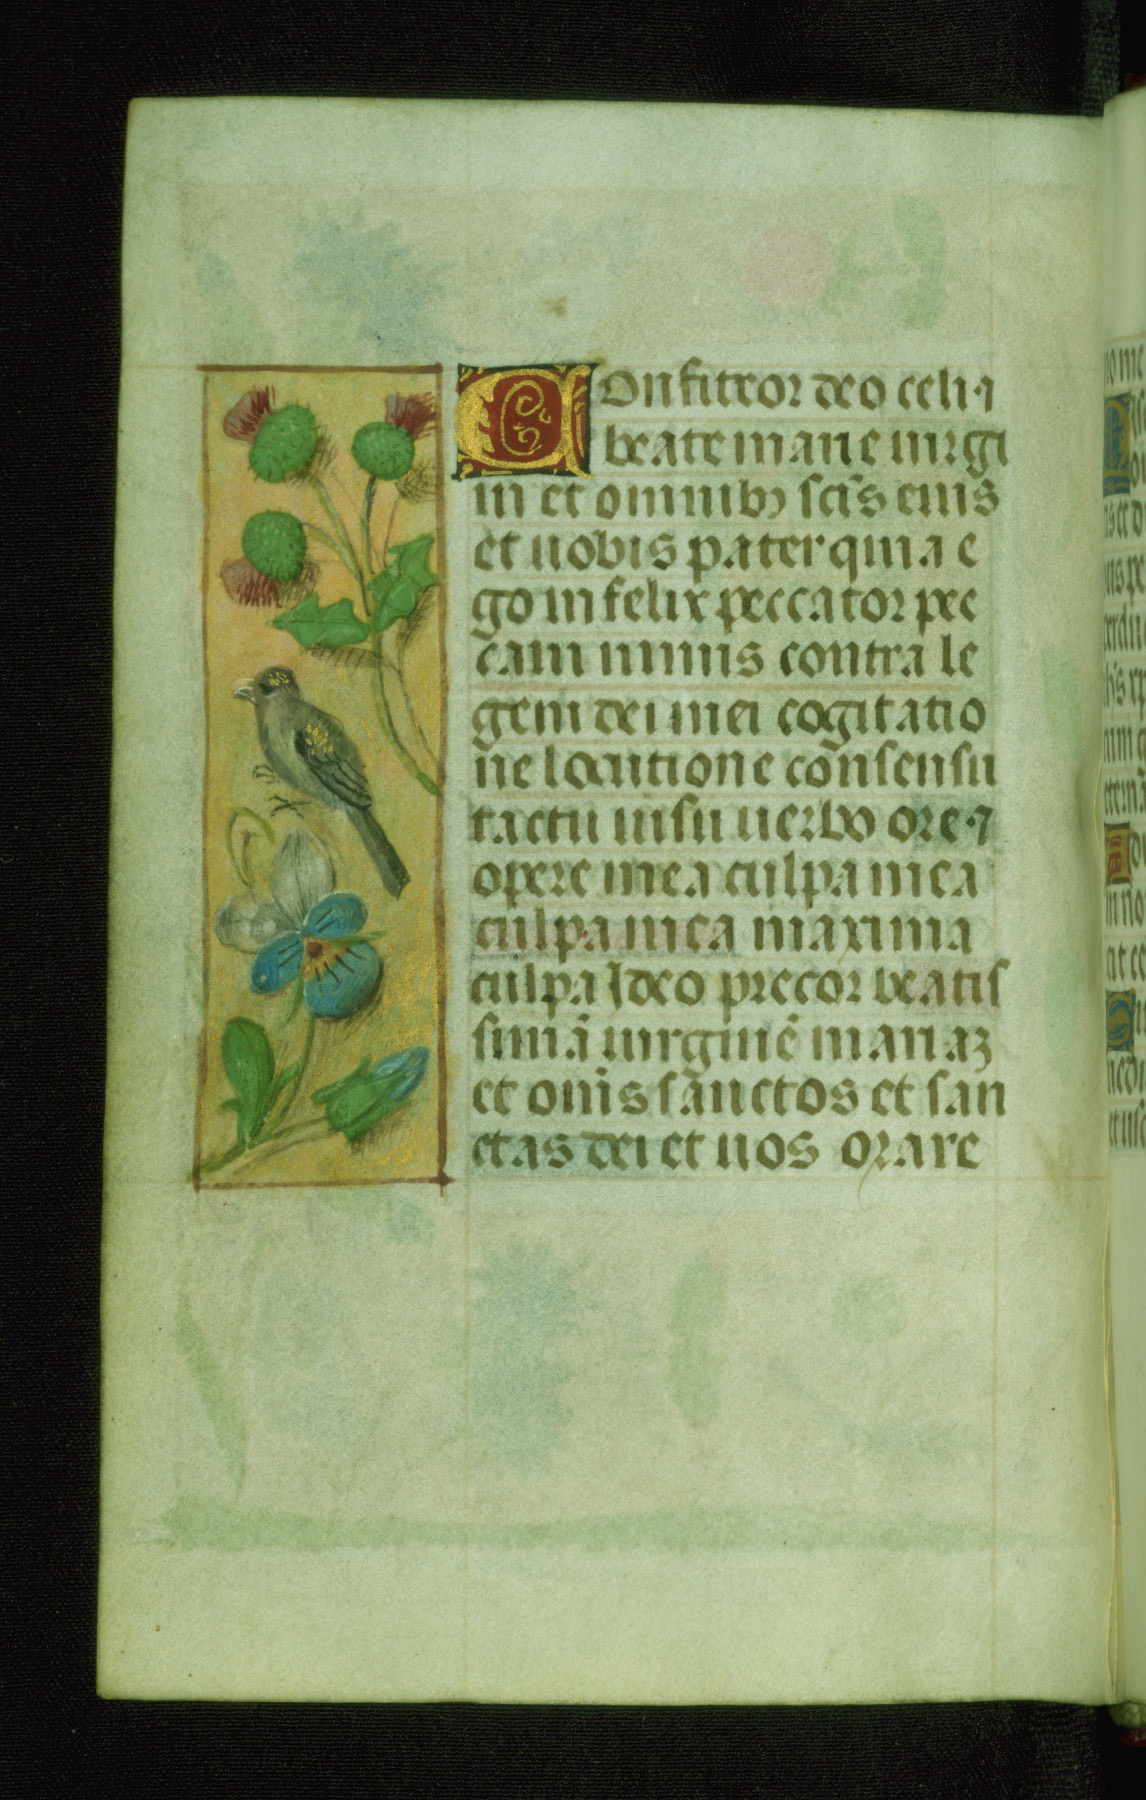 Confiteor deo celi ⁊
beate marie virgi
ni et omnibꝫ sc̄is eius
et uobis pater quia e
go infelix peccator pec
caui nimis contra le
gem dei mei cogitatio
ne locutione cōnsensu
tactu uisu uerbo ore ⁊
opere mea culpa mea
culpa mea maxima
culpa Ideo precor beatis
simā uirginē mariaꝫ
et om̄s sanctos et san
ctas dei et uos orare